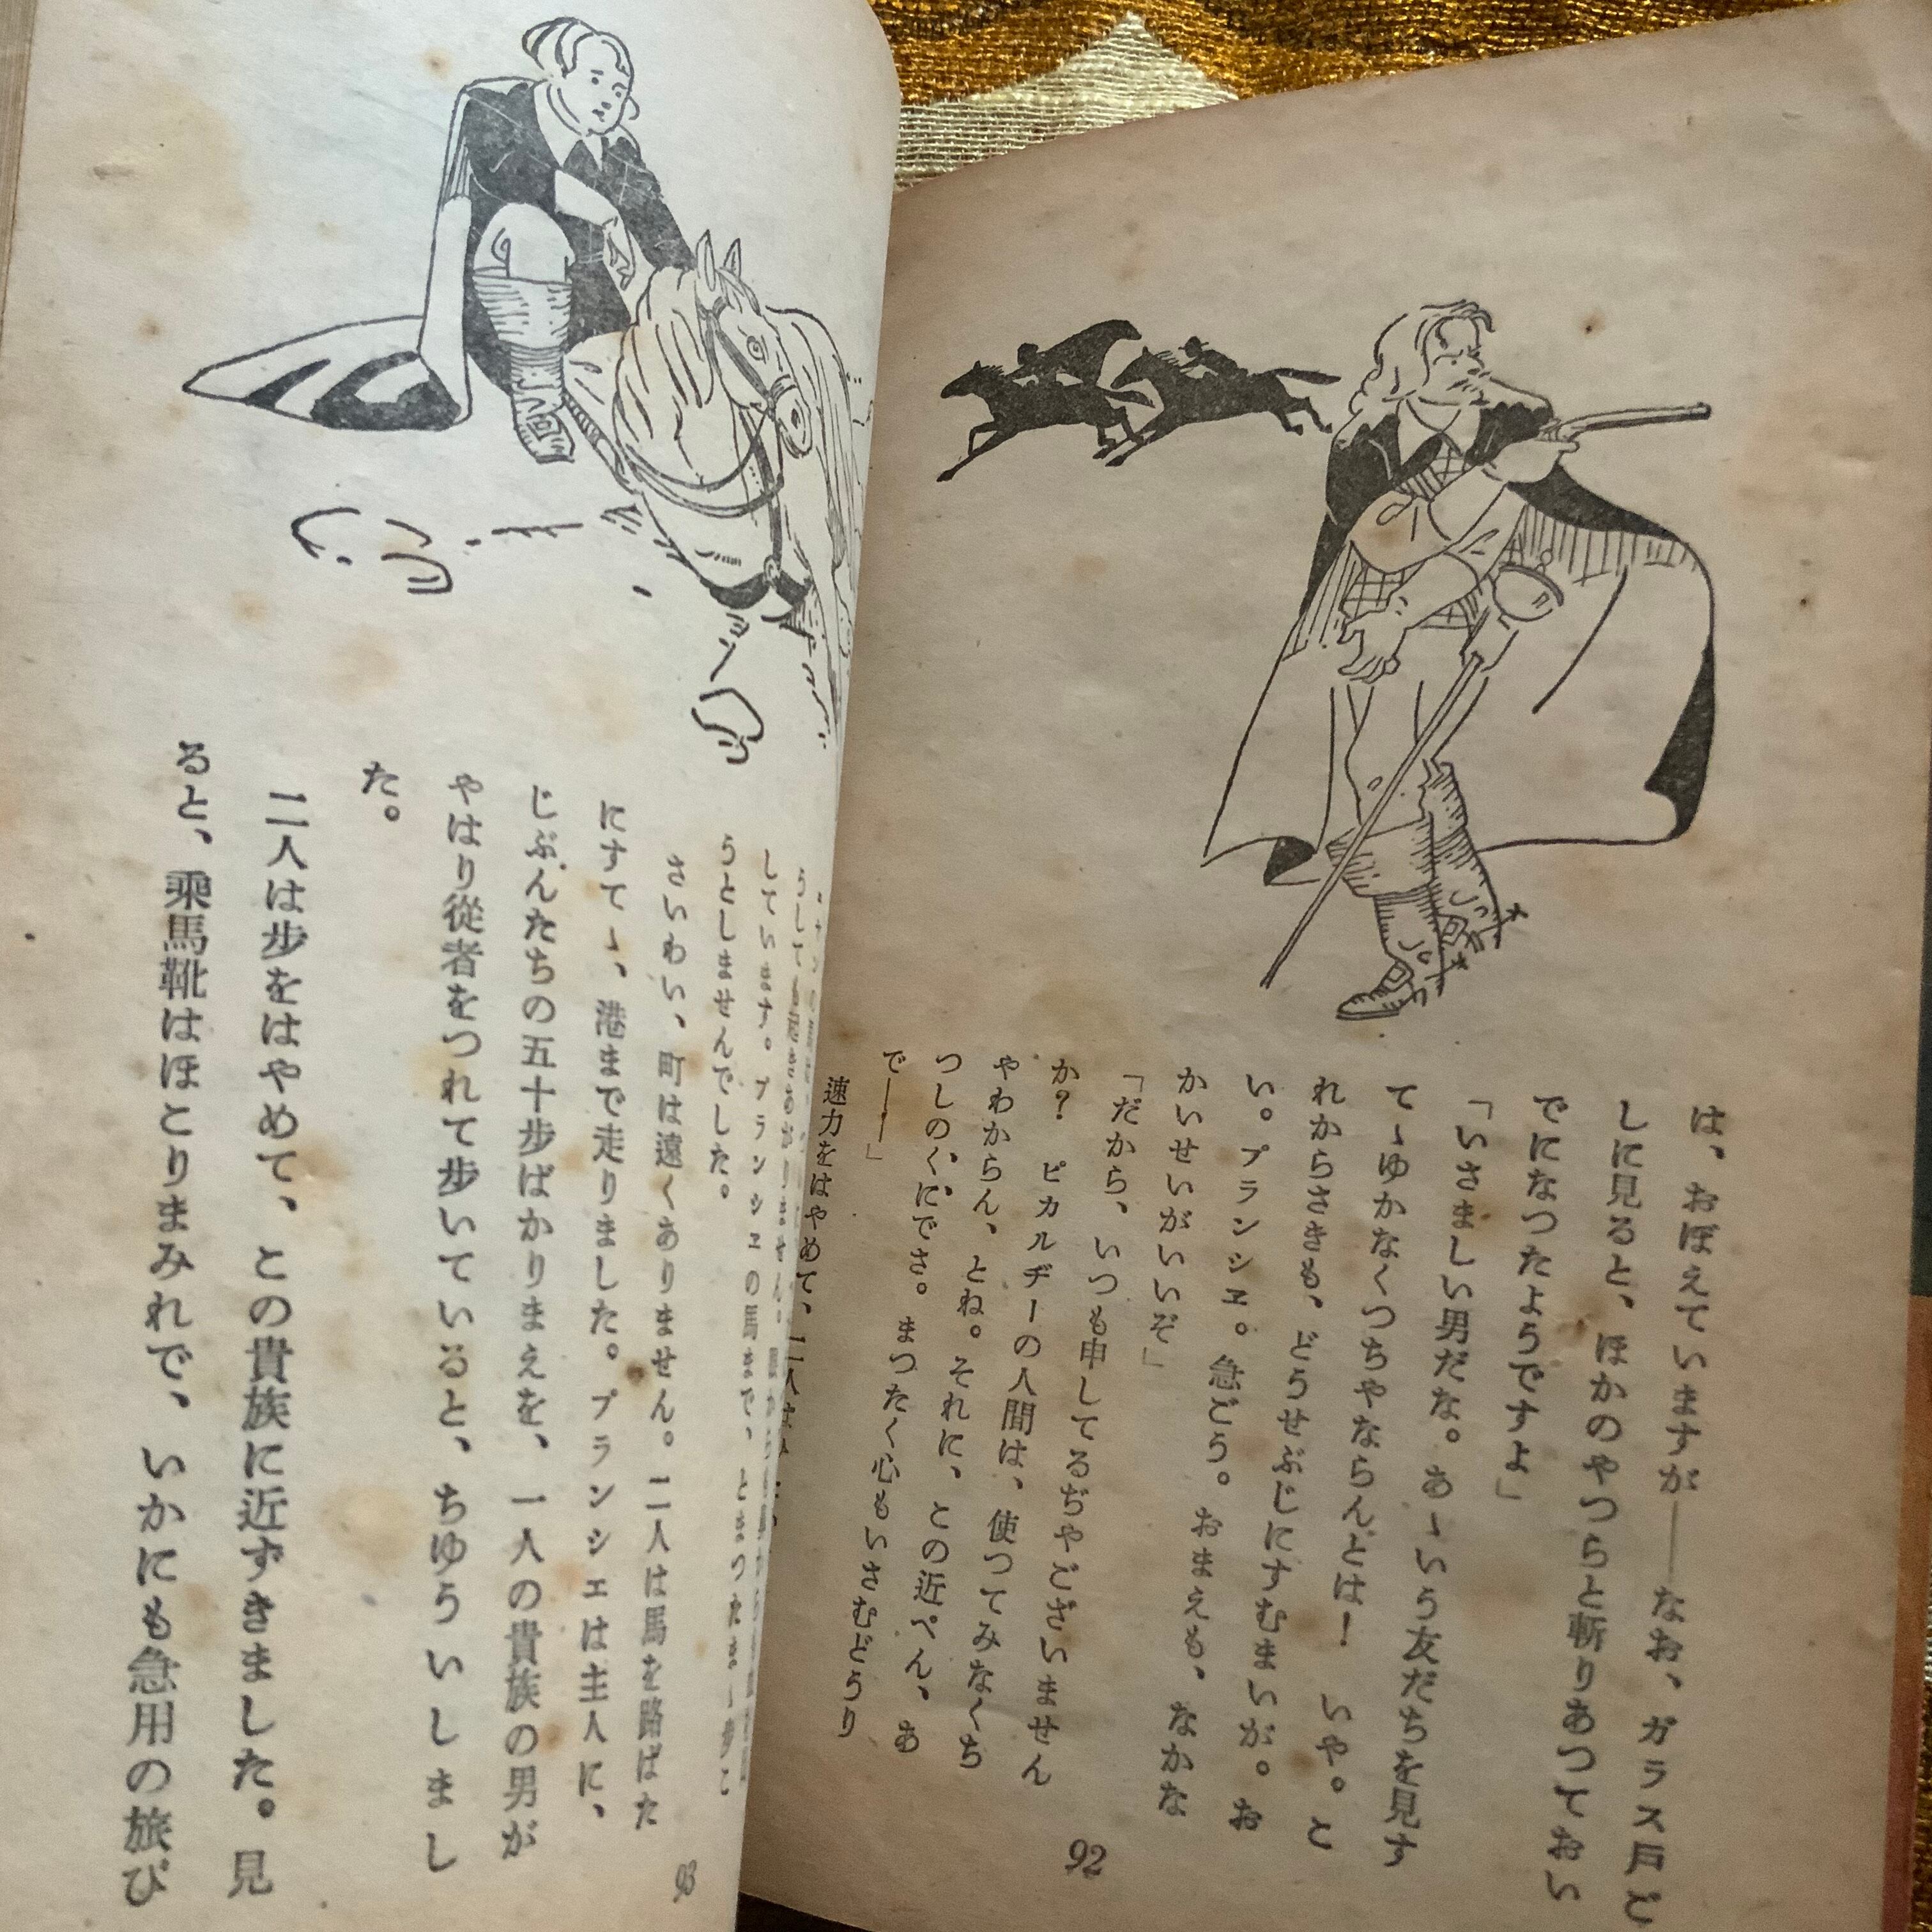 は、おぼえていますが――なお、ガラス戸ご
しに見ると、ほかのやつらと斬りあつておい
でになつたようですよ」
「いさましい男だな。あゝいう友だちを見す
てゝゆかなくつちやならんとは！　いや。こ
れからさきも、どうせぶじにすむまいが。お
い。プランシエ。急ごう。おまえも、なかな
かいせいがいいぞ」
「だから、いつも申してるぢやございません
か？　ピカルヂーの人間は、使つてみなくち
やわからん、とね。それに、この近ぺん、あ
つしのくにでさ。まつたく心もいさむどうり
で――」
速力をはやめて、二人は
92
しています。プランシエの馬まで、とまつたまゝ歩こ
うとしませんでした。
さいわい、町は遠くありません。二人は馬を路ばた
にすてゝ、港まで走りました。プランシエは主人に、
じぶんたちの五十歩ばかりまえを、一人の貴族の男が
やはり從者をつれて歩いていると、ちゆういしまし
た。
二人は歩をはやめて、この貴族に近ずきました。見
ると、乘馬靴はほとりまみれで、いかにも急用の旅び
93